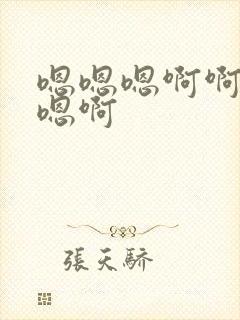 嗯嗯嗯啊啊
嗯啊
張天驕